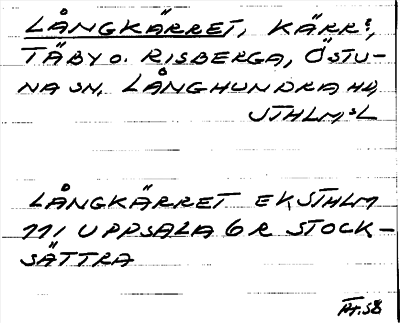 LÅNGKÄRRET, KÄRR?,
TÄBY O. RISBERGA, ÖSTU-
NA SN, LÅNGHUNDRA HD,
STHLM:S L
LÅNGKÄRRET EK STHLM
111 UPPSALA 6 R STOCK-
SÄTTRA